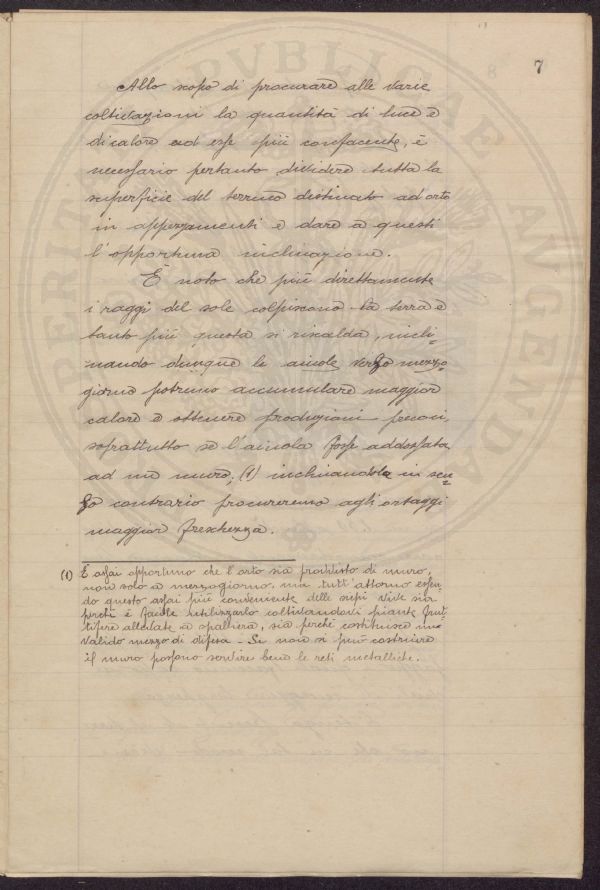 7
Allo scopo di procurare alle varie
coltivazioni la quantità di luce e
di calore ad esse più confacente, è
necessario pertanto dividere tutta la
superficie del terreno destinato ad orto
in appezzamenti e dare a questi
l'opportuna inclinazione.
È noto che più direttamente
i raggi del sole colpiscono la terra e
tanto più questa si riscalda, incli-
nando dunque le aiuole verso mezzo
giorno potremo accumulare maggior
calore e ottenere produzioni precoci,
soprattutto se l'aiuola fosse addossata
ad un muro; (1) inclinandole in sen-
so contrario procureremo agli ortaggi
maggior freschezza.
(1) È assai opportuno che l'orto sia provvisto di muro,
non solo a mezzogiorno, ma tutt'attorno essen
do questo assai più conveniente delle siepi vive sia
perché è facile utilizzarlo coltivandovi piante frut-
tifere allevate a spalliera, sia perché costituisce un
valido mezzo di difesa - Se non si può costruire
il muro possono servire bene le reti metalliche.
PVBLICAE
AVGENDAE